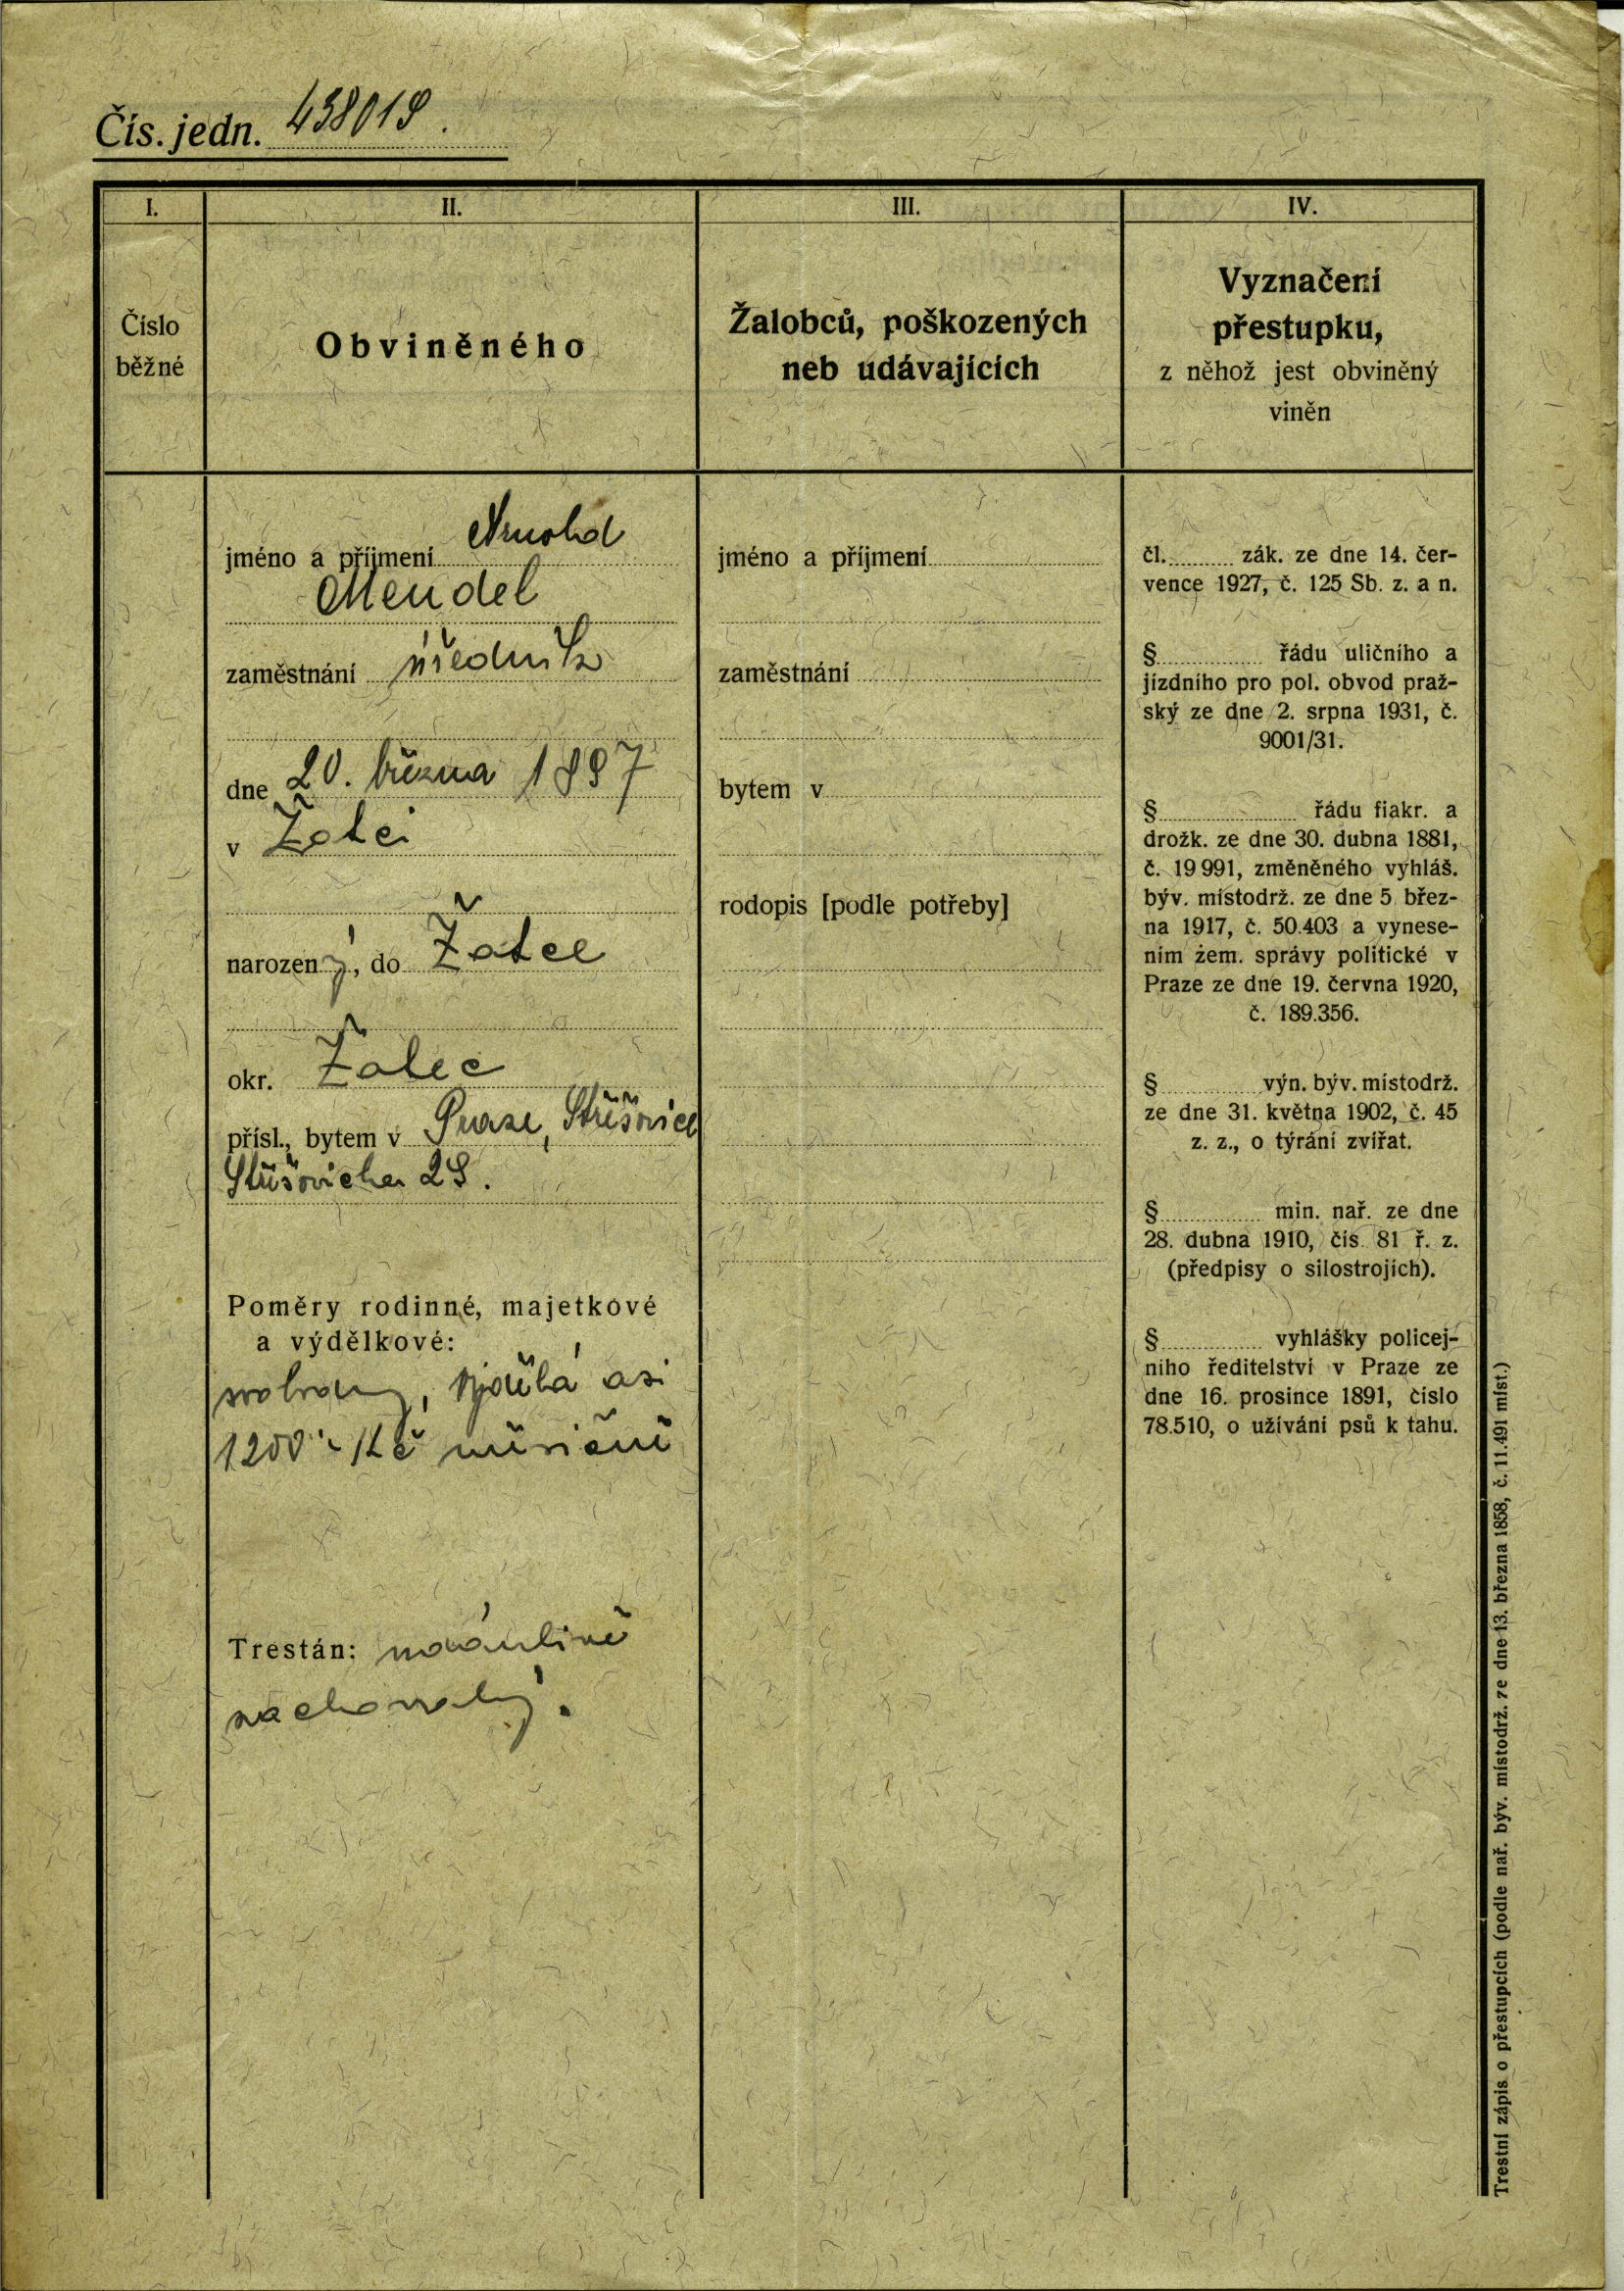 Čís. jedn. 438019.
I.
II.
III.
IV.
Číslo
běžné
Obviněného
Žalobců, poškozených
neb udávajících
Vyznačení
přestupku,
z něhož jest obviněný
viněn
jméno a příjmení Arnold
Mendel
zaměstnání úředník
dne 20. března 1897
v Žatci
narozený, do Žatce
okr. Žatec
přísl., bytem v Praze, Střešovice
Střešovická 29.
Poměry rodinné, majetkové
a výdělkové:
svobodný, vydělá asi
1200'- Kč měsíčně
Trestán: nadánlivě
zachovalý.
jméno a příjmení
zaměstnání
bytem v
rodopis [podle potřeby]
čl. zák. ze dne 14. čer-
vence 1927, č. 125 Sb. z. a n.
§ řádu uličního a
jízdního pro pol. obvod praž-
ský ze dne 2. srpna 1931, č.
9001/31.
§ řádu fiakr. a
drožk. ze dne 30. dubna 1881,
č. 19 991, změněného vyhláš.
býv. místodrž. ze dne 5 břez-
na 1917, č. 50.403 a vynese-
ním zem. správy politické v
Praze ze dne 19. června 1920,
č. 189.356.
§ výn. býv. místodrž.
ze dne 31. května 1902, č. 45
z. z., o týrání zvířat.
§ min. nař. ze dne
28. dubna 1910, čís. 81 ř. z.
(předpisy o silostrojích).
§ vyhlášky policej-
ního ředitelství v Praze ze
dne 16. prosince 1891, číslo
78.510, o užívání psů k tahu.
Trestní zápis o přestupcích (podle nař. býv. místodrž. ze dne 13. března 1858, č. 11.491 míst.)